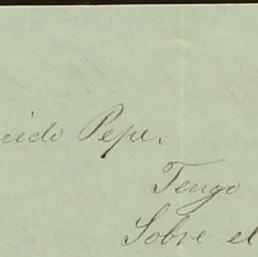 Pepe.
Tengo
Sobre el